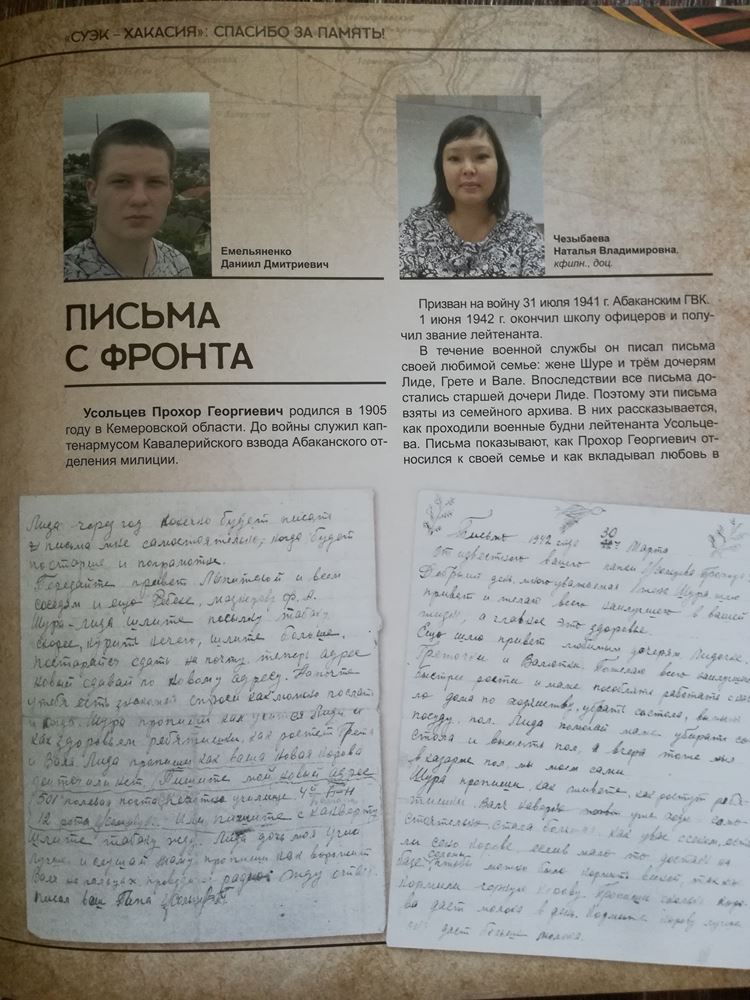 «СУЭК – ХАКАСИЯ»: СПАСИБО ЗА ПАМЯТЬ!
Емельяненко
Даниил Дмитриевич
Чезыбаева
Наталья Владимировна,
кфилн., доц.
ПИСЬМА
С ФРОНТА
Усольцев Прохор Георгиевич родился в 1905
году в Кемеровской области. До войны служил кап-
тенармусом Кавалерийского взвода Абаканского от-
деления милиции.
Призван на войну 31 июля 1941 г. Абаканским ГВК.
1 июня 1942 г. окончил школу офицеров и полу-
чил звание лейтенанта.
В течение военной службы он писал письма
своей любимой семье: жене Шуре и трём дочерям
Лиде, Грете и Вале. Впоследствии все письма до-
стались старшей дочери Лиде. Поэтому эти письма
взяты из семейного архива. В них рассказывается,
как проходили военные будни лейтенанта Усольце-
ва. Письма показывают, как Прохор Георгиевич от-
носился к своей семье и как вкладывал любовь в
Лида через год конечно будет писать
письма мне самостоятельно, когда будет
по старше и пограмотне.
Передайте привет и всем
соседям и ещо
Шура-Лида шлите посылку табаку
скорее, курить нечего, шлите больше.
постарайтесь сдать на почту теперь адрес
новый сдавай по новому адресу.
у тебя есть знакомые спроси как можно послать
Шура пропиши как учится Лида и
как здоровьем ребятишки, как ростет Грета
и Валя Лида пропиши как ваша новая корова
доится или нет, Пишите мой новый адрес
501 полевая почта училище 4й б-н
12 рота Усольцеву. Или пишите с
шлите табаку жду. Лида дочь моя учись
лучше и слушай маму пропиши как
Валя на пальцах жду ответ
Писал ваш Папа
Письмо 1942 года 30 Марта
от известного вашего папки Усольцева Прохора
Добрый день, многоуважаемая жена Шура, шлю
привет и желаю всего наилучшего в вашей
жизни, а главное это здоровье.
Ещо шлю привет любимым дочерям, Лидочке,
Греточки и Валютки. Пожелаю всего наилучшего
быстрее рости и маме пособлять работать
ло дома по хозяйству, убрать со стола, вымыть
посуду, пол. Лида помогай маме убирать со
стола и вымыть пол, а вчера тоже мыл
в казарме пол, мы моем сами.
Шура пропиши, как живете, как ростут ребя-
тишки. Валя наверно уже ходе само-
стоятельно, стала большая. Как у вас с сеном,
ли сено корове, если мало то, достань на
базе соломы, можно было кормить
кормили корову. Пропиши сколько коро-
ва дает молока в день. Кормите корову лучше
дает больше молока.